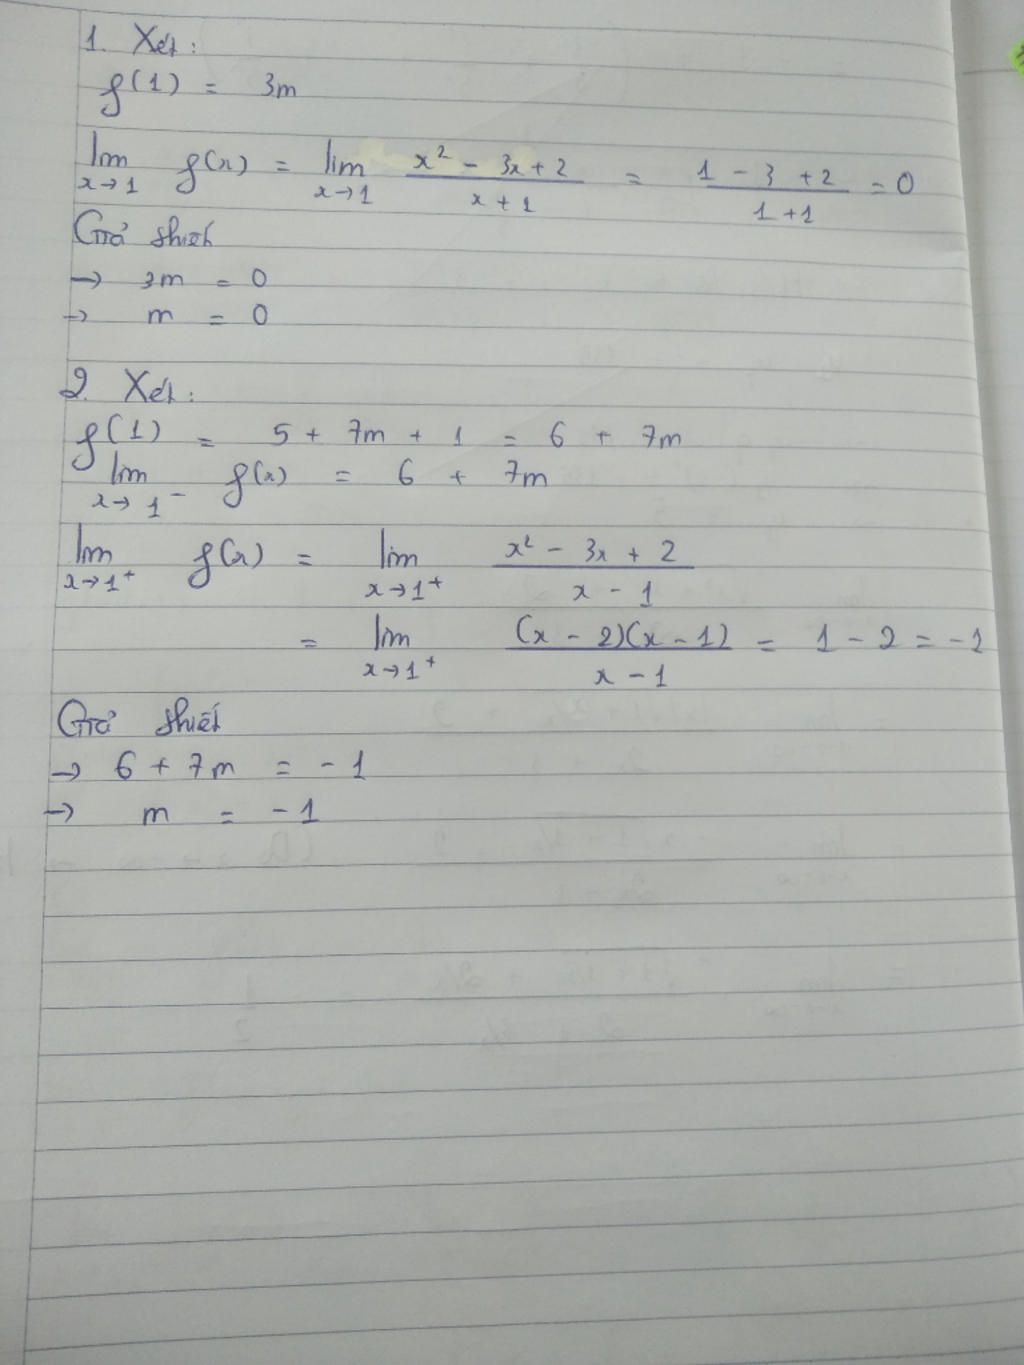 1. Xét:
f(1) = 3m
lim x→1 f(x) = lim x→1 (x² - 3x + 2)/(x + 1) = (1 - 3 + 2)/(1 + 1) = 0
Giả thiết
→ 3m = 0
→ m = 0
2. Xét:
f(1) = 5 + 7m + 1 = 6 + 7m
lim x→1⁻ f(x) = 6 + 7m
lim x→1⁺ f(x) = lim x→1⁺ (x² - 3x + 2)/(x - 1)
= lim x→1⁺ (x - 2)(x - 1)/(x - 1) = 1 - 2 = -1
Giả thiết
→ 6 + 7m = -1
→ m = -1